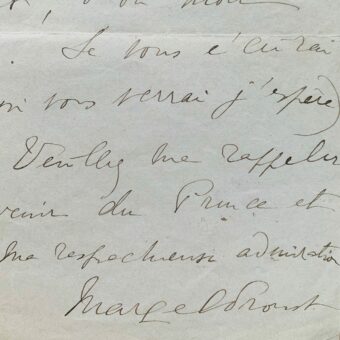 , d'un mot
. Je vous écrirai
vous verrai j'espère)
Veuillez me rappeler
venir du Prince et
ma respectueuse admiration
Marcel Proust